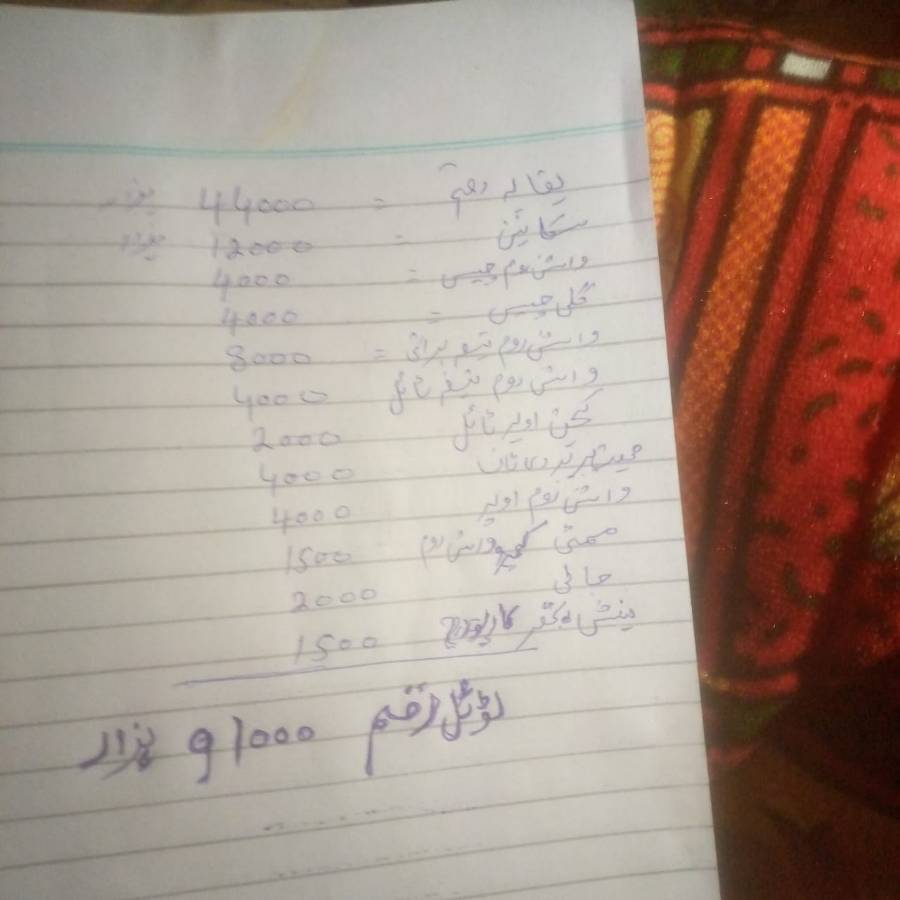 بقایا رقم = 44000 ہزار
12000 = ہزار
واش روم چپس = 4000
گلی چپس = 4000
واش روم = 8000
واش روم ٹائل 4000
کچن اوپر ٹائل 2000
4000
واش روم اوپر 4000
ممٹی واش روم 1500
جالی 2000
1500
ٹوٹل رقم 91000 ہزار